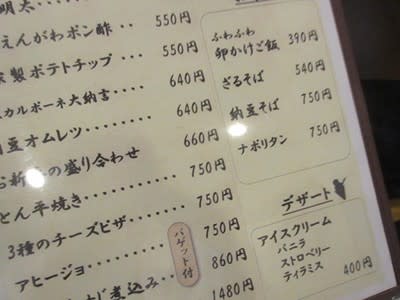 明太
550円
えんがわポン酢‥ 550円
製ポテトチップ‥ 640円
カルボーネ大納言‥ 640円
豆オムレツ‥‥‥‥ 660円
の盛り合わせ 750円
とん平焼き‥‥‥‥‥ 750円
3種のチーズピザ‥ 750円
アヒージョ‥‥‥‥ 860円
バゲット付
煮込み‥ 1480円
ふわふわ
卵かけご飯 390円
ざるそば 540円
納豆そば 750円
ナポリタン 750円
デザート
アイスクリーム
バニラ
ストロベリー
ティラミス 400円